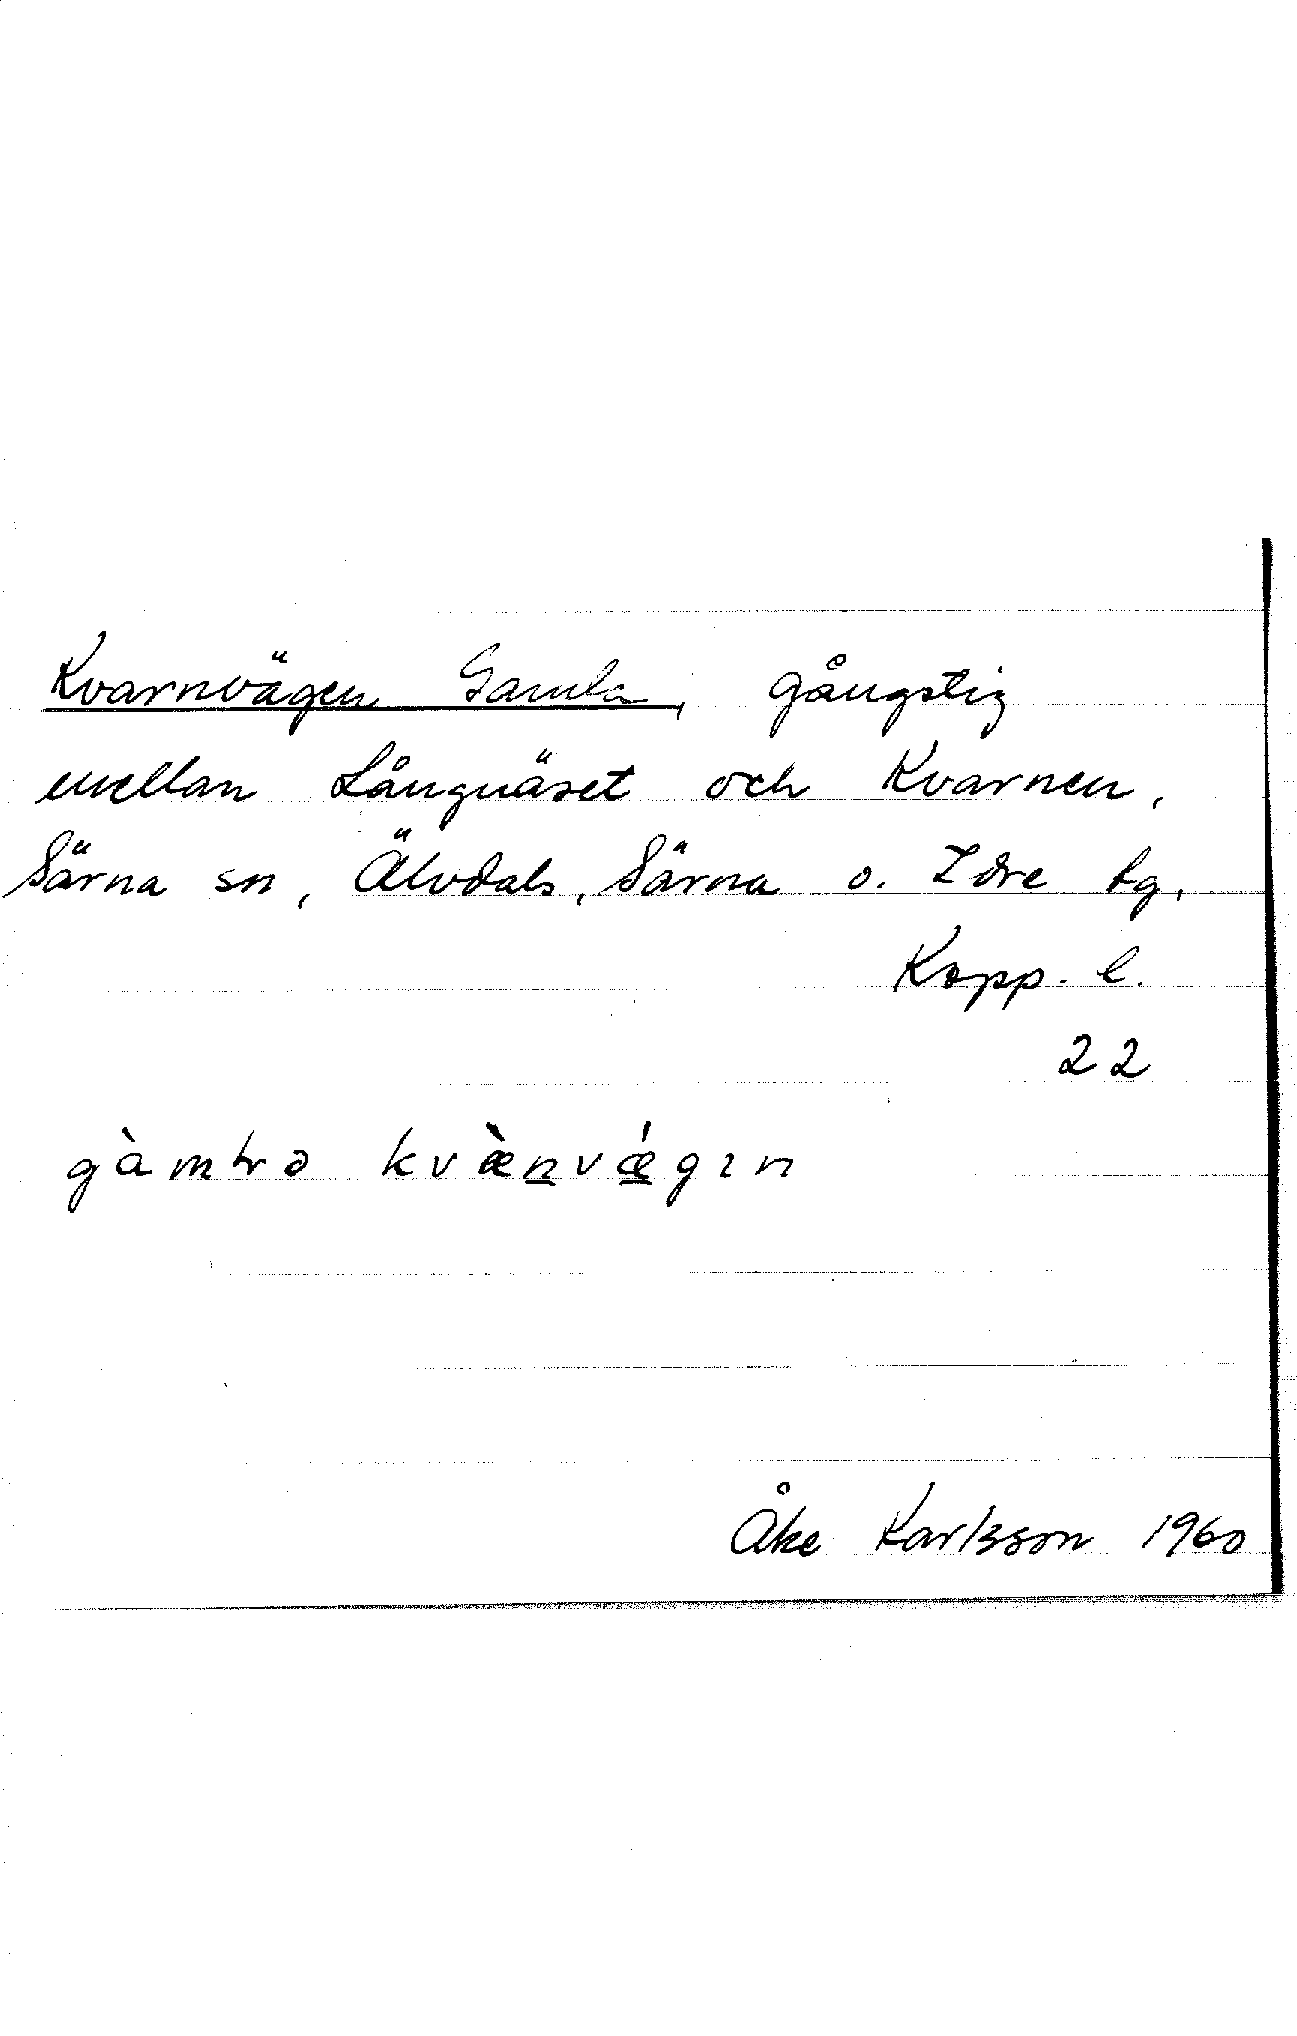 Kvarnvägen, Gamla, gångstig
mellan Långnäset och Kvarnen,
Särna sn, Älvdals, Särna o. Idre tg,
Kopp. l.
22
gàmłrə kvæ̀nvǽgın
Åke Karlsson 1960